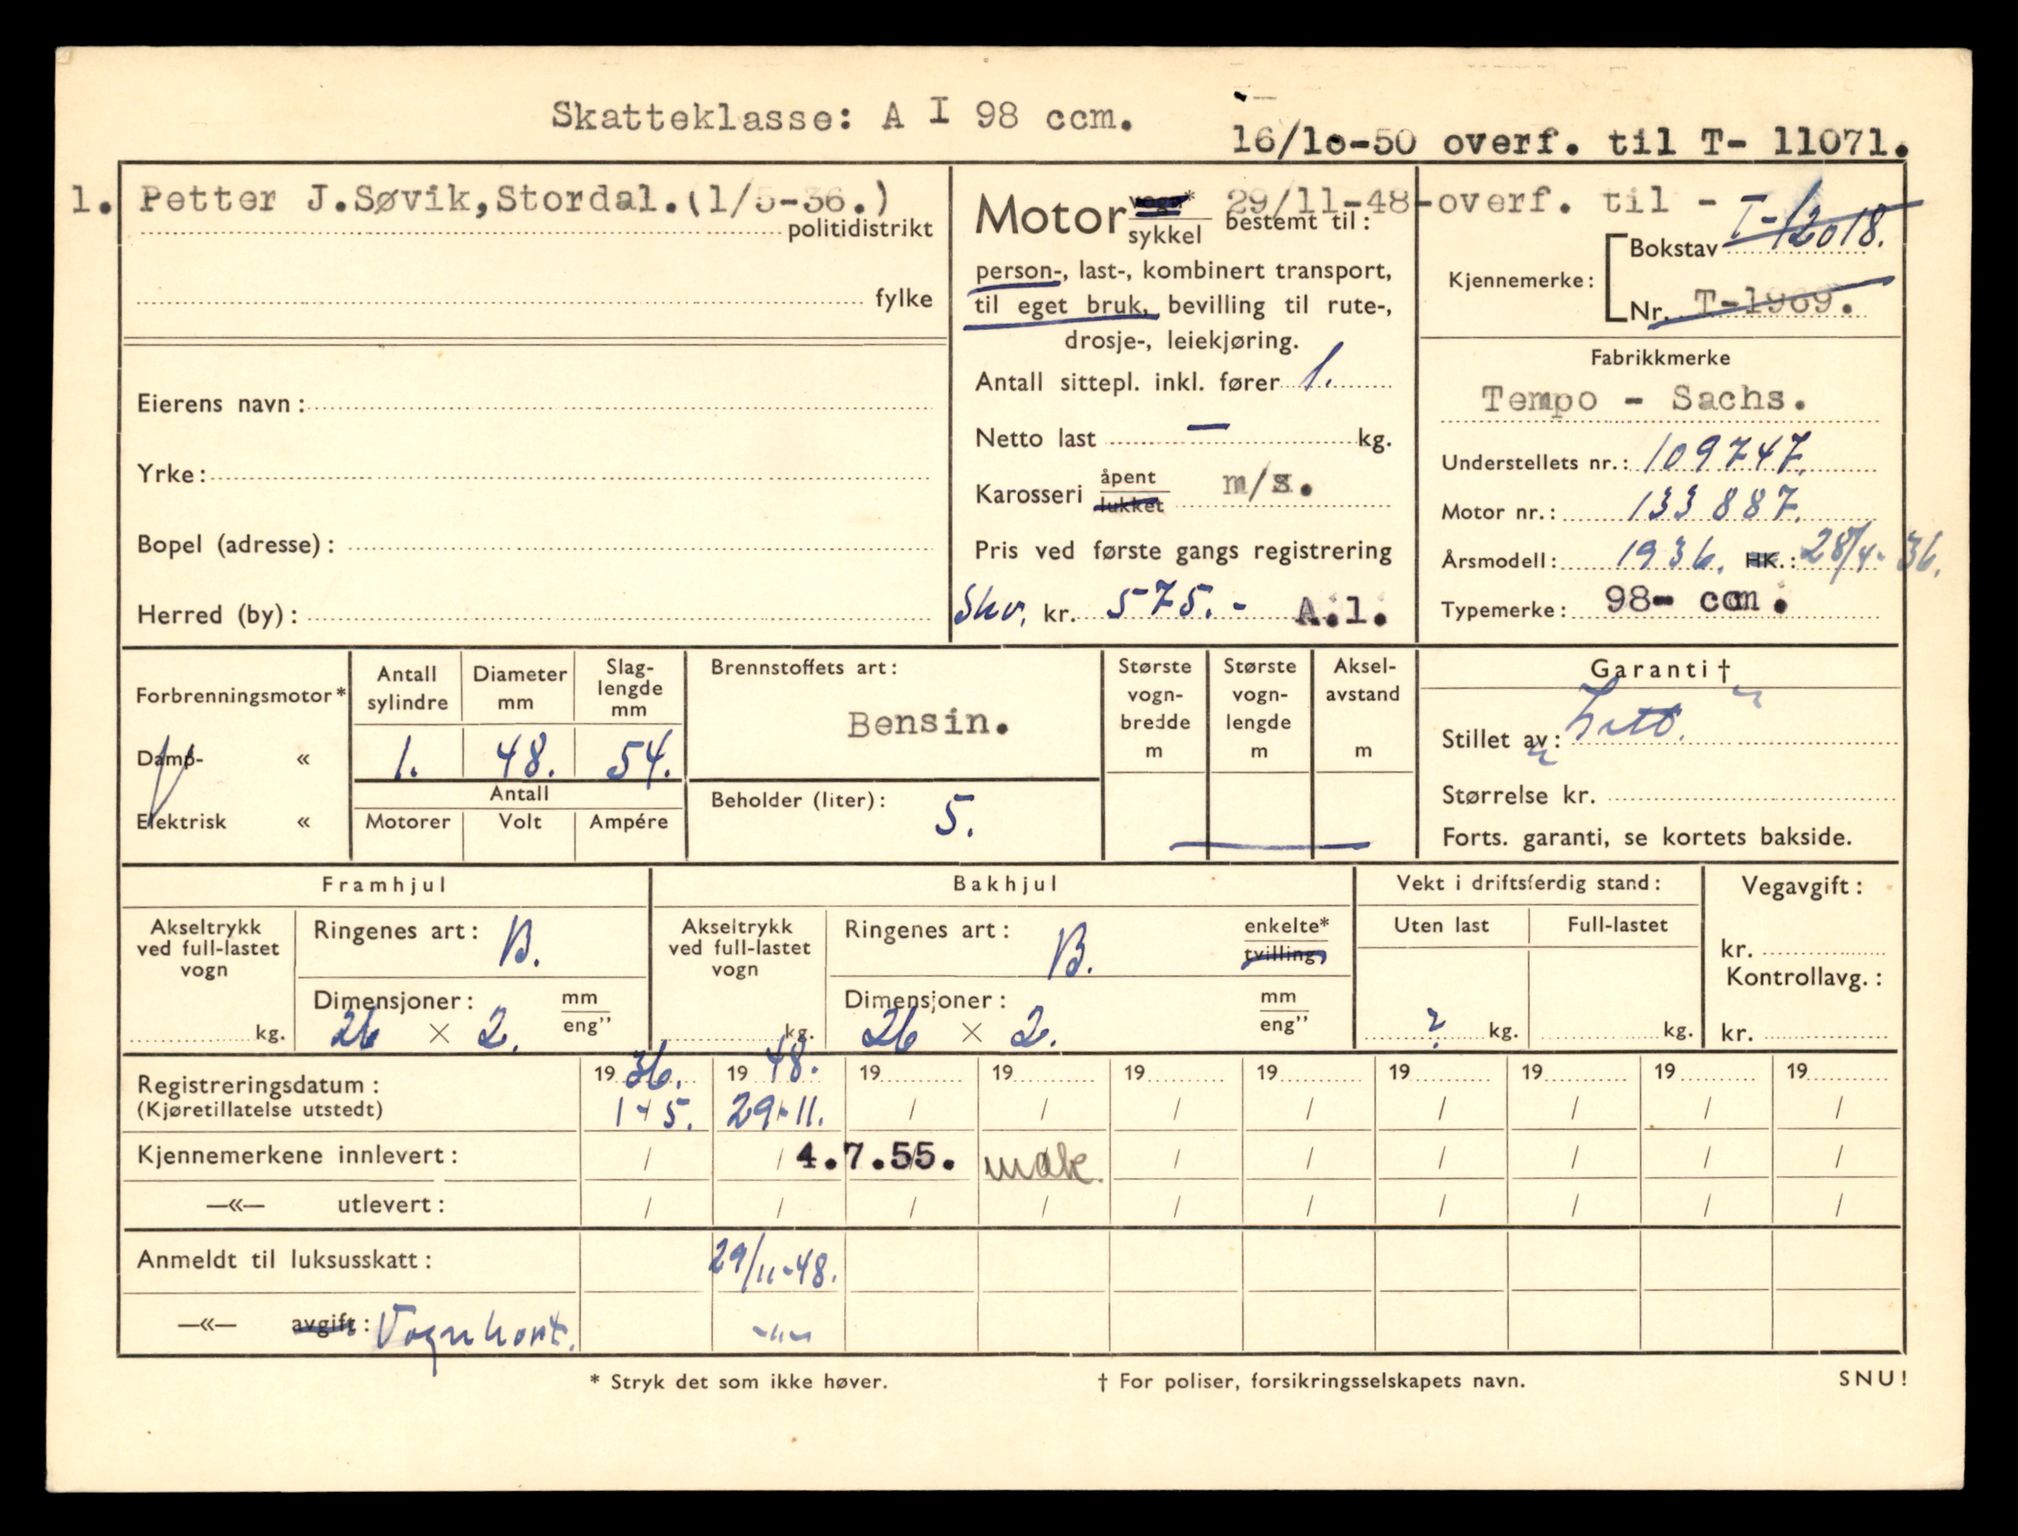 Skatteklasse: A I 98 ccm.
16/1o-50 overf. til T- 11071.
1. Petter J.Søvik,Stordal.(1/5-36.)
politidistrikt
fylke
Eierens navn:
Yrke:
Bopel (adresse):
Herred (by):
Motor vogn* sykkel
29/11-48-overf. til - T-12018.
bestemt til:
person-, last-, kombinert transport,
til eget bruk, bevilling til rute-,
drosje-, leiekjøring.
Antall sittepl. inkl. fører 1.
Netto last — kg.
Karosseri åpent lukket m/s.
Pris ved første gangs registrering
Skv. kr. 575.- A.1.
Kjennemerke: Bokstav
Nr. T-1969.
Fabrikkmerke
Tempo - Sachs.
Understellets nr.: 109747.
Motor nr.: 133 887.
Årsmodell: 1936. HK.: 28/4-36.
Typemerke: 98- ccm.
Forbrenningsmotor*
Damp- «
Elektrisk «
Antall sylindre
1.
Diameter mm
48.
Slag-lengde mm
54.
Antall
Motorer Volt Ampére
Brennstoffets art:
Bensin.
Beholder (liter): 5.
Største vogn-bredde m
Største vogn-lengde m
Aksel-avstand m
Garanti †
Stillet av:
Størrelse kr.
Forts. garanti, se kortets bakside.
Framhjul
Akseltrykk ved full-lastet vogn
kg.
Ringenes art: B.
Dimensjoner: mm eng”
26 × 2.
Bakhjul
Akseltrykk ved full-lastet vogn
kg.
Ringenes art: B. enkelte* tvilling
Dimensjoner: mm eng”
26 × 2.
Vekt i driftsferdig stand:
Uten last Full-lastet
? kg. kg.
Vegavgift:
kr.
Kontrollavg.:
kr.
Registreringsdatum: 19 36. 19 48. 19 19 19 19 19 19 19 19
(Kjøretillatelse utstedt) 1-5. 29-11. / / / / / / / /
Kjennemerkene innlevert: / / 4.7.55. mak. / / / / / /
—«— utlevert: / / / / / / / / / /
Anmeldt til luksusskatt: 29/11-48.
—«— avgift: Vognkort. -"-
* Stryk det som ikke høver.
† For poliser, forsikringsselskapets navn.
SNU!